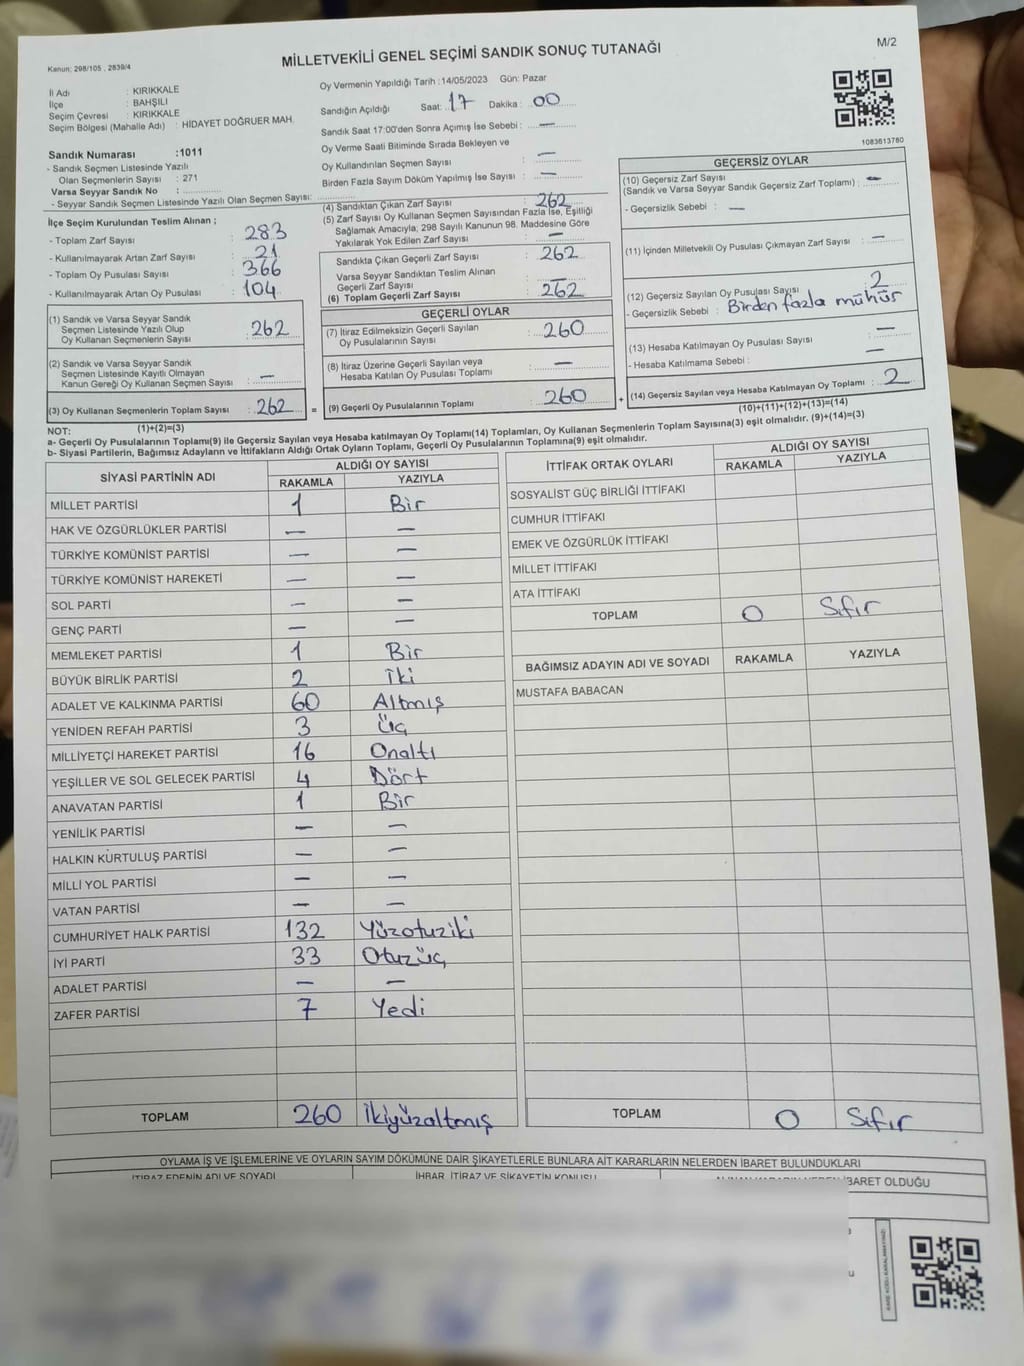 MİLLETVEKİLİ GENEL SEÇİMİ SANDIK SONUÇ TUTANAĞI
M/2
Kanun: 298/105 , 2839/4
İl Adı : KIRIKKALE
İlçe : BAHŞILI
Seçim Çevresi : KIRIKKALE
Seçim Bölgesi (Mahalle Adı) : HİDAYET DOĞRUER MAH.
Sandık Numarası :1011
- Sandık Seçmen Listesinde Yazılı
Olan Seçmenlerin Sayısı : 271
Varsa Seyyar Sandık No :
- Seyyar Sandık Seçmen Listesinde Yazılı Olan Seçmen Sayısı:
Oy Vermenin Yapıldığı Tarih :14/05/2023 Gün: Pazar
Sandığın Açıldığı Saat: 17 Dakika : 00
Sandık Saat 17:00'den Sonra Açımış İse Sebebi : —
Oy Verme Saati Bitiminde Sırada Bekleyen ve
Oy Kullandırılan Seçmen Sayısı : —
Birden Fazla Sayım Döküm Yapılmış İse Sayısı : —
1083613760
İlçe Seçim Kurulundan Teslim Alınan ;
- Toplam Zarf Sayısı : 283
- Kullanılmayarak Artan Zarf Sayısı : 21
- Toplam Oy Pusulası Sayısı : 366
- Kullanılmayarak Artan Oy Pusulası : 104
(1) Sandık ve Varsa Seyyar Sandık
Seçmen Listesinde Yazılı Olup
Oy Kullanan Seçmenlerin Sayısı : 262
(2) Sandık ve Varsa Seyyar Sandık
Seçmen Listesinde Kayıtlı Olmayan
Kanun Gereği Oy Kullanan Seçmen Sayısı : —
(3) Oy Kullanan Seçmenlerin Toplam Sayısı : 262 =
(4) Sandıktan Çıkan Zarf Sayısı : 262
(5) Zarf Sayısı Oy Kullanan Seçmen Sayısından Fazla İse, Eşitliği
Sağlamak Amacıyla; 298 Sayılı Kanunun 98. Maddesine Göre
Yakılarak Yok Edilen Zarf Sayısı : —
Sandıkta Çıkan Geçerli Zarf Sayısı : 262
Varsa Seyyar Sandıktan Teslim Alınan
Geçerli Zarf Sayısı : —
(6) Toplam Geçerli Zarf Sayısı : 262
GEÇERLİ OYLAR
(7) İtiraz Edilmeksizin Geçerli Sayılan
Oy Pusulalarının Sayısı : 260
(8) İtiraz Üzerine Geçerli Sayılan veya
Hesaba Katılan Oy Pusulası Toplamı : —
(9) Geçerli Oy Pusulalarının Toplamı : 260 +
GEÇERSİZ OYLAR
(10) Geçersiz Zarf Sayısı
(Sandık ve Varsa Seyyar Sandık Geçersiz Zarf Toplamı) : —
- Geçersizlik Sebebi : —
(11) İçinden Milletvekili Oy Pusulası Çıkmayan Zarf Sayısı : —
(12) Geçersiz Sayılan Oy Pusulası Sayısı : 2
- Geçersizlik Sebebi : Birden fazla mühür
(13) Hesaba Katılmayan Oy Pusulası Sayısı : —
- Hesaba Katılmama Sebebi : —
(14) Geçersiz Sayılan veya Hesaba Katılmayan Oy Toplamı : 2
NOT: (1)+(2)=(3)
(10)+(11)+(12)+(13)=(14)
a- Geçerli Oy Pusulalarının Toplamı(9) ile Geçersiz Sayılan veya Hesaba katılmayan Oy Toplamı(14) Toplamları, Oy Kullanan Seçmenlerin Toplam Sayısına(3) eşit olmalıdır. (9)+(14)=(3)
b- Siyasi Partilerin, Bağımsız Adayların ve İttifakların Aldığı Ortak Oyların Toplamı, Geçerli Oy Pusulalarının Toplamına(9) eşit olmalıdır.
SİYASİ PARTİNİN ADI ALDIĞI OY SAYISI
RAKAMLA YAZIYLA
MİLLET PARTİSİ 1 Bir
HAK VE ÖZGÜRLÜKLER PARTİSİ — —
TÜRKİYE KOMÜNİST PARTİSİ — —
TÜRKİYE KOMÜNİST HAREKETİ — —
SOL PARTİ — —
GENÇ PARTİ — —
MEMLEKET PARTİSİ 1 Bir
BÜYÜK BİRLİK PARTİSİ 2 İki
ADALET VE KALKINMA PARTİSİ 60 Altmış
YENİDEN REFAH PARTİSİ 3 Üç
MİLLİYETÇİ HAREKET PARTİSİ 16 Onaltı
YEŞİLLER VE SOL GELECEK PARTİSİ 4 Dört
ANAVATAN PARTİSİ 1 Bir
YENİLİK PARTİSİ — —
HALKIN KURTULUŞ PARTİSİ — —
MİLLİ YOL PARTİSİ — —
VATAN PARTİSİ — —
CUMHURİYET HALK PARTİSİ 132 Yüzotuziki
İYİ PARTİ 33 Otuzüç
ADALET PARTİSİ — —
ZAFER PARTİSİ 7 Yedi
TOPLAM 260 İkiyüzaltmış
İTTİFAK ORTAK OYLARI ALDIĞI OY SAYISI
RAKAMLA YAZIYLA
SOSYALİST GÜÇ BİRLİĞİ İTTİFAKI
CUMHUR İTTİFAKI
EMEK VE ÖZGÜRLÜK İTTİFAKI
MİLLET İTTİFAKI
ATA İTTİFAKI
TOPLAM 0 Sıfır
BAĞIMSIZ ADAYIN ADI VE SOYADI RAKAMLA YAZIYLA
MUSTAFA BABACAN
TOPLAM 0 Sıfır
OYLAMA İŞ VE İŞLEMLERİNE VE OYLARIN SAYIM DÖKÜMÜNE DAİR ŞİKAYETLERLE BUNLARA AİT KARARLARIN NELERDEN İBARET BULUNDUKLARI
İTİRAZ EDENİN ADI VE SOYADI İHBAR, İTİRAZ VE ŞİKAYETİN KONUSU İBARET OLDUĞU